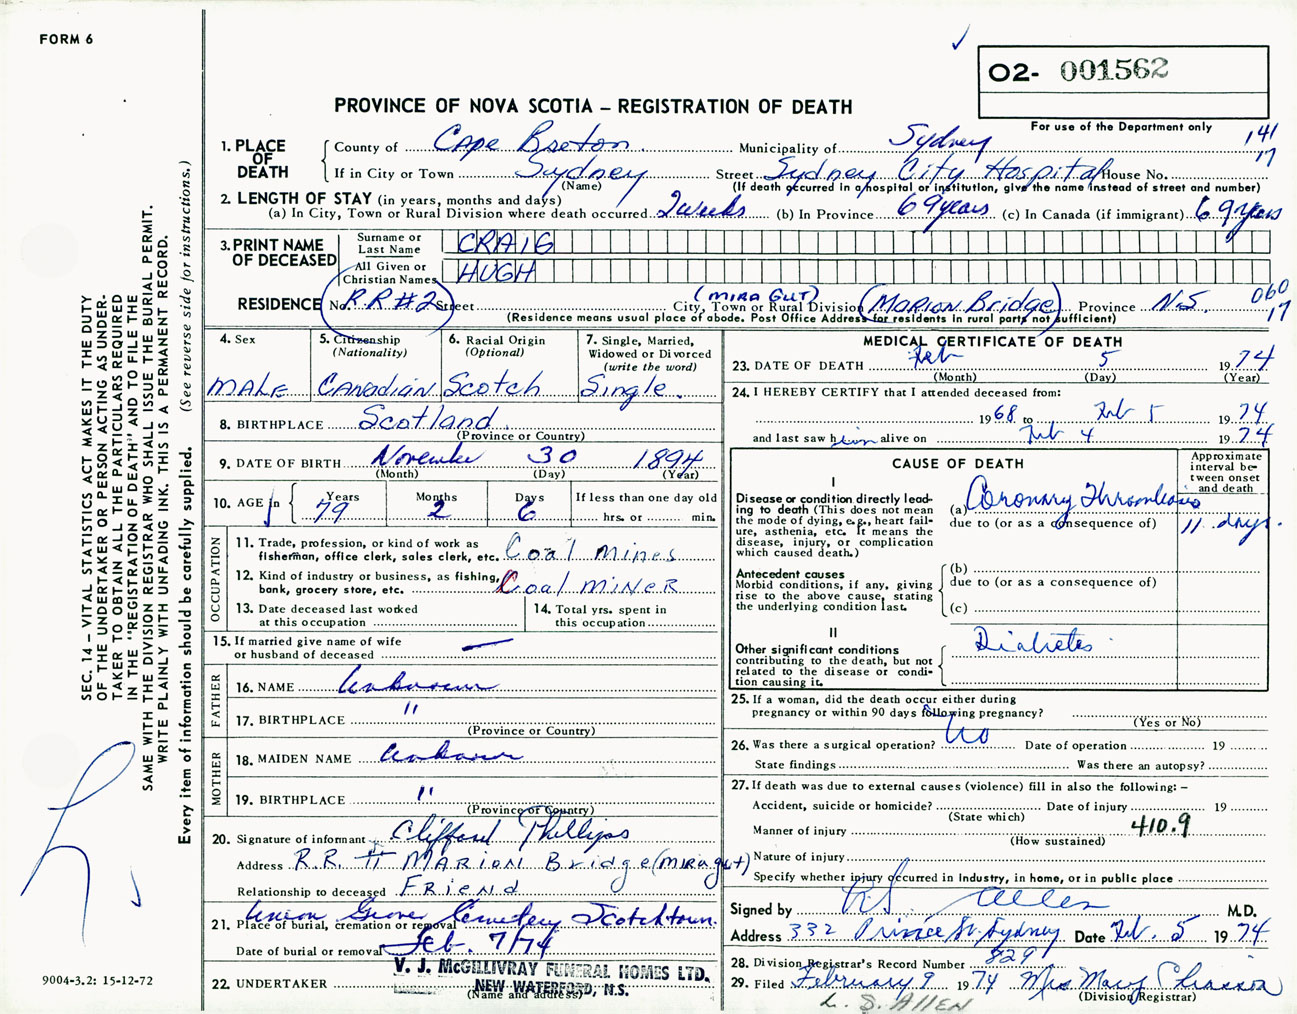 FORM 6
O2- 001562
For use of the Department only
141
17
PROVINCE OF NOVA SCOTIA – REGISTRATION OF DEATH
1. PLACE OF DEATH
County of Cape Breton Municipality of Sydney
If in City or Town Sydney Street Sydney City Hospital House No.
(Name) (If death occurred in a hospital or institution, give the name instead of street and number)
2. LENGTH OF STAY (in years, months and days)
(a) In City, Town or Rural Division where death occurred 2 weeks (b) In Province 69 years (c) In Canada (if immigrant) 69 years
3. PRINT NAME OF DECEASED
Surname or Last Name CRAIG
All Given or Christian Names HUGH
RESIDENCE No. R.R #2 Street City, Town or Rural Division (MIRA GUT) MARION BRidge Province N.S. 060
17
(Residence means usual place of abode. Post Office Address for residents in rural parts not sufficient)
4. Sex
MALE
5. Citizenship (Nationality)
CANADIAN
6. Racial Origin (Optional)
Scotch
7. Single, Married, Widowed or Divorced (write the word)
Single.
8. BIRTHPLACE Scotland
(Province or Country)
9. DATE OF BIRTH November 30 1894
(Month) (Day) (Year)
10. AGE in Years 79 Months 2 Days 6 If less than one day old hrs. or min.
OCCUPATION
11. Trade, profession, or kind of work as fisherman, office clerk, sales clerk, etc. Coal mines
12. Kind of industry or business, as fishing, bank, grocery store, etc. Coal MINER
13. Date deceased last worked at this occupation
14. Total yrs. spent in this occupation
15. If married give name of wife or husband of deceased —
FATHER
16. NAME Unknown
17. BIRTHPLACE "
(Province or Country)
MOTHER
18. MAIDEN NAME Unknown
19. BIRTHPLACE "
(Province or Country)
20. Signature of informant Clifford Phillips
Address R.R. # MARION Bridge (MIRA gut)
Relationship to deceased FRIEND
21. Place of burial, cremation or removal Union Grove Cemetery Scotchtown.
Date of burial or removal Feb. 7/74
22. UNDERTAKER V. J. McGILLIVRAY FUNERAL HOMES LTD.
NEW WATERFORD, N.S.
(Name and address)
MEDICAL CERTIFICATE OF DEATH
23. DATE OF DEATH Feb 5 1974
(Month) (Day) (Year)
24. I HEREBY CERTIFY that I attended deceased from:
1968 to Feb 5 1974
and last saw him alive on Feb 4 1974
CAUSE OF DEATH
Approximate interval between onset and death
I
Disease or condition directly leading to death (This does not mean the mode of dying, e.g., heart failure, asthenia, etc. It means the disease, injury, or complication which caused death.)
(a) Coronary Thrombosis
due to (or as a consequence of) 11 days.
Antecedent causes
Morbid conditions, if any, giving rise to the above cause, stating the underlying condition last.
(b)
due to (or as a consequence of)
(c)
II
Other significant conditions
contributing to the death, but not related to the disease or condition causing it.
Diabetes
25. If a woman, did the death occur either during pregnancy or within 90 days following pregnancy?
(Yes or No)
26. Was there a surgical operation? No Date of operation 19
State findings Was there an autopsy?
27. If death was due to external causes (violence) fill in also the following: –
Accident, suicide or homicide? Date of injury 19
(State which)
Manner of injury 410.9
(How sustained)
Nature of injury
Specify whether injury occurred in industry, in home, or in public place
Signed by Allen M.D.
Address 332 Prince St. Sydney Date Feb. 5 1974
28. Division Registrar's Record Number 829
29. Filed February 9 1974 Mrs Mary Chiasson
(Division Registrar)
L. S. ALLEN
SEC. 14 – VITAL STATISTICS ACT MAKES IT THE DUTY
OF THE UNDERTAKER OR PERSON ACTING AS UNDER-
TAKER TO OBTAIN ALL THE PARTICULARS REQUIRED
IN THE "REGISTRATION OF DEATH" AND TO FILE THE
SAME WITH THE DIVISION REGISTRAR WHO SHALL ISSUE THE BURIAL PERMIT.
WRITE PLAINLY WITH UNFADING INK. THIS IS A PERMANENT RECORD.
Every item of information should be carefully supplied. (See reverse side for instructions.)
9004-3.2: 15-12-72